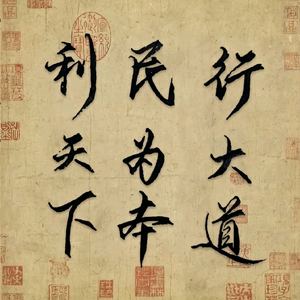 行大道
民为本
利天下